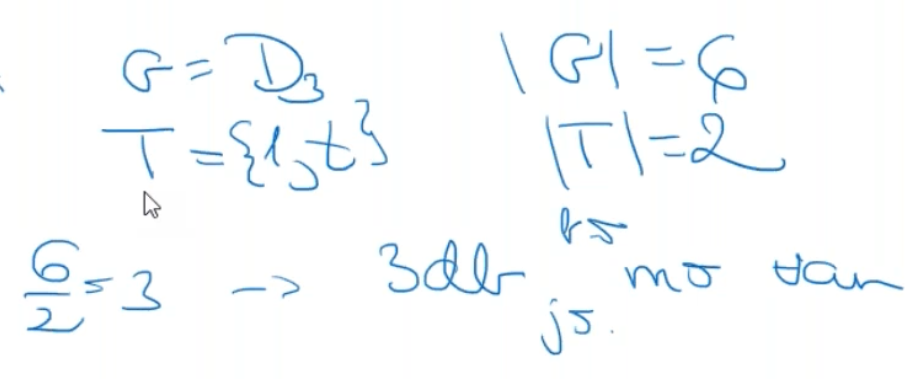 G = D₃ |G| = 6
T = {1, t} |T| = 2
6/2 = 3 → 3db bo. jo. mo van